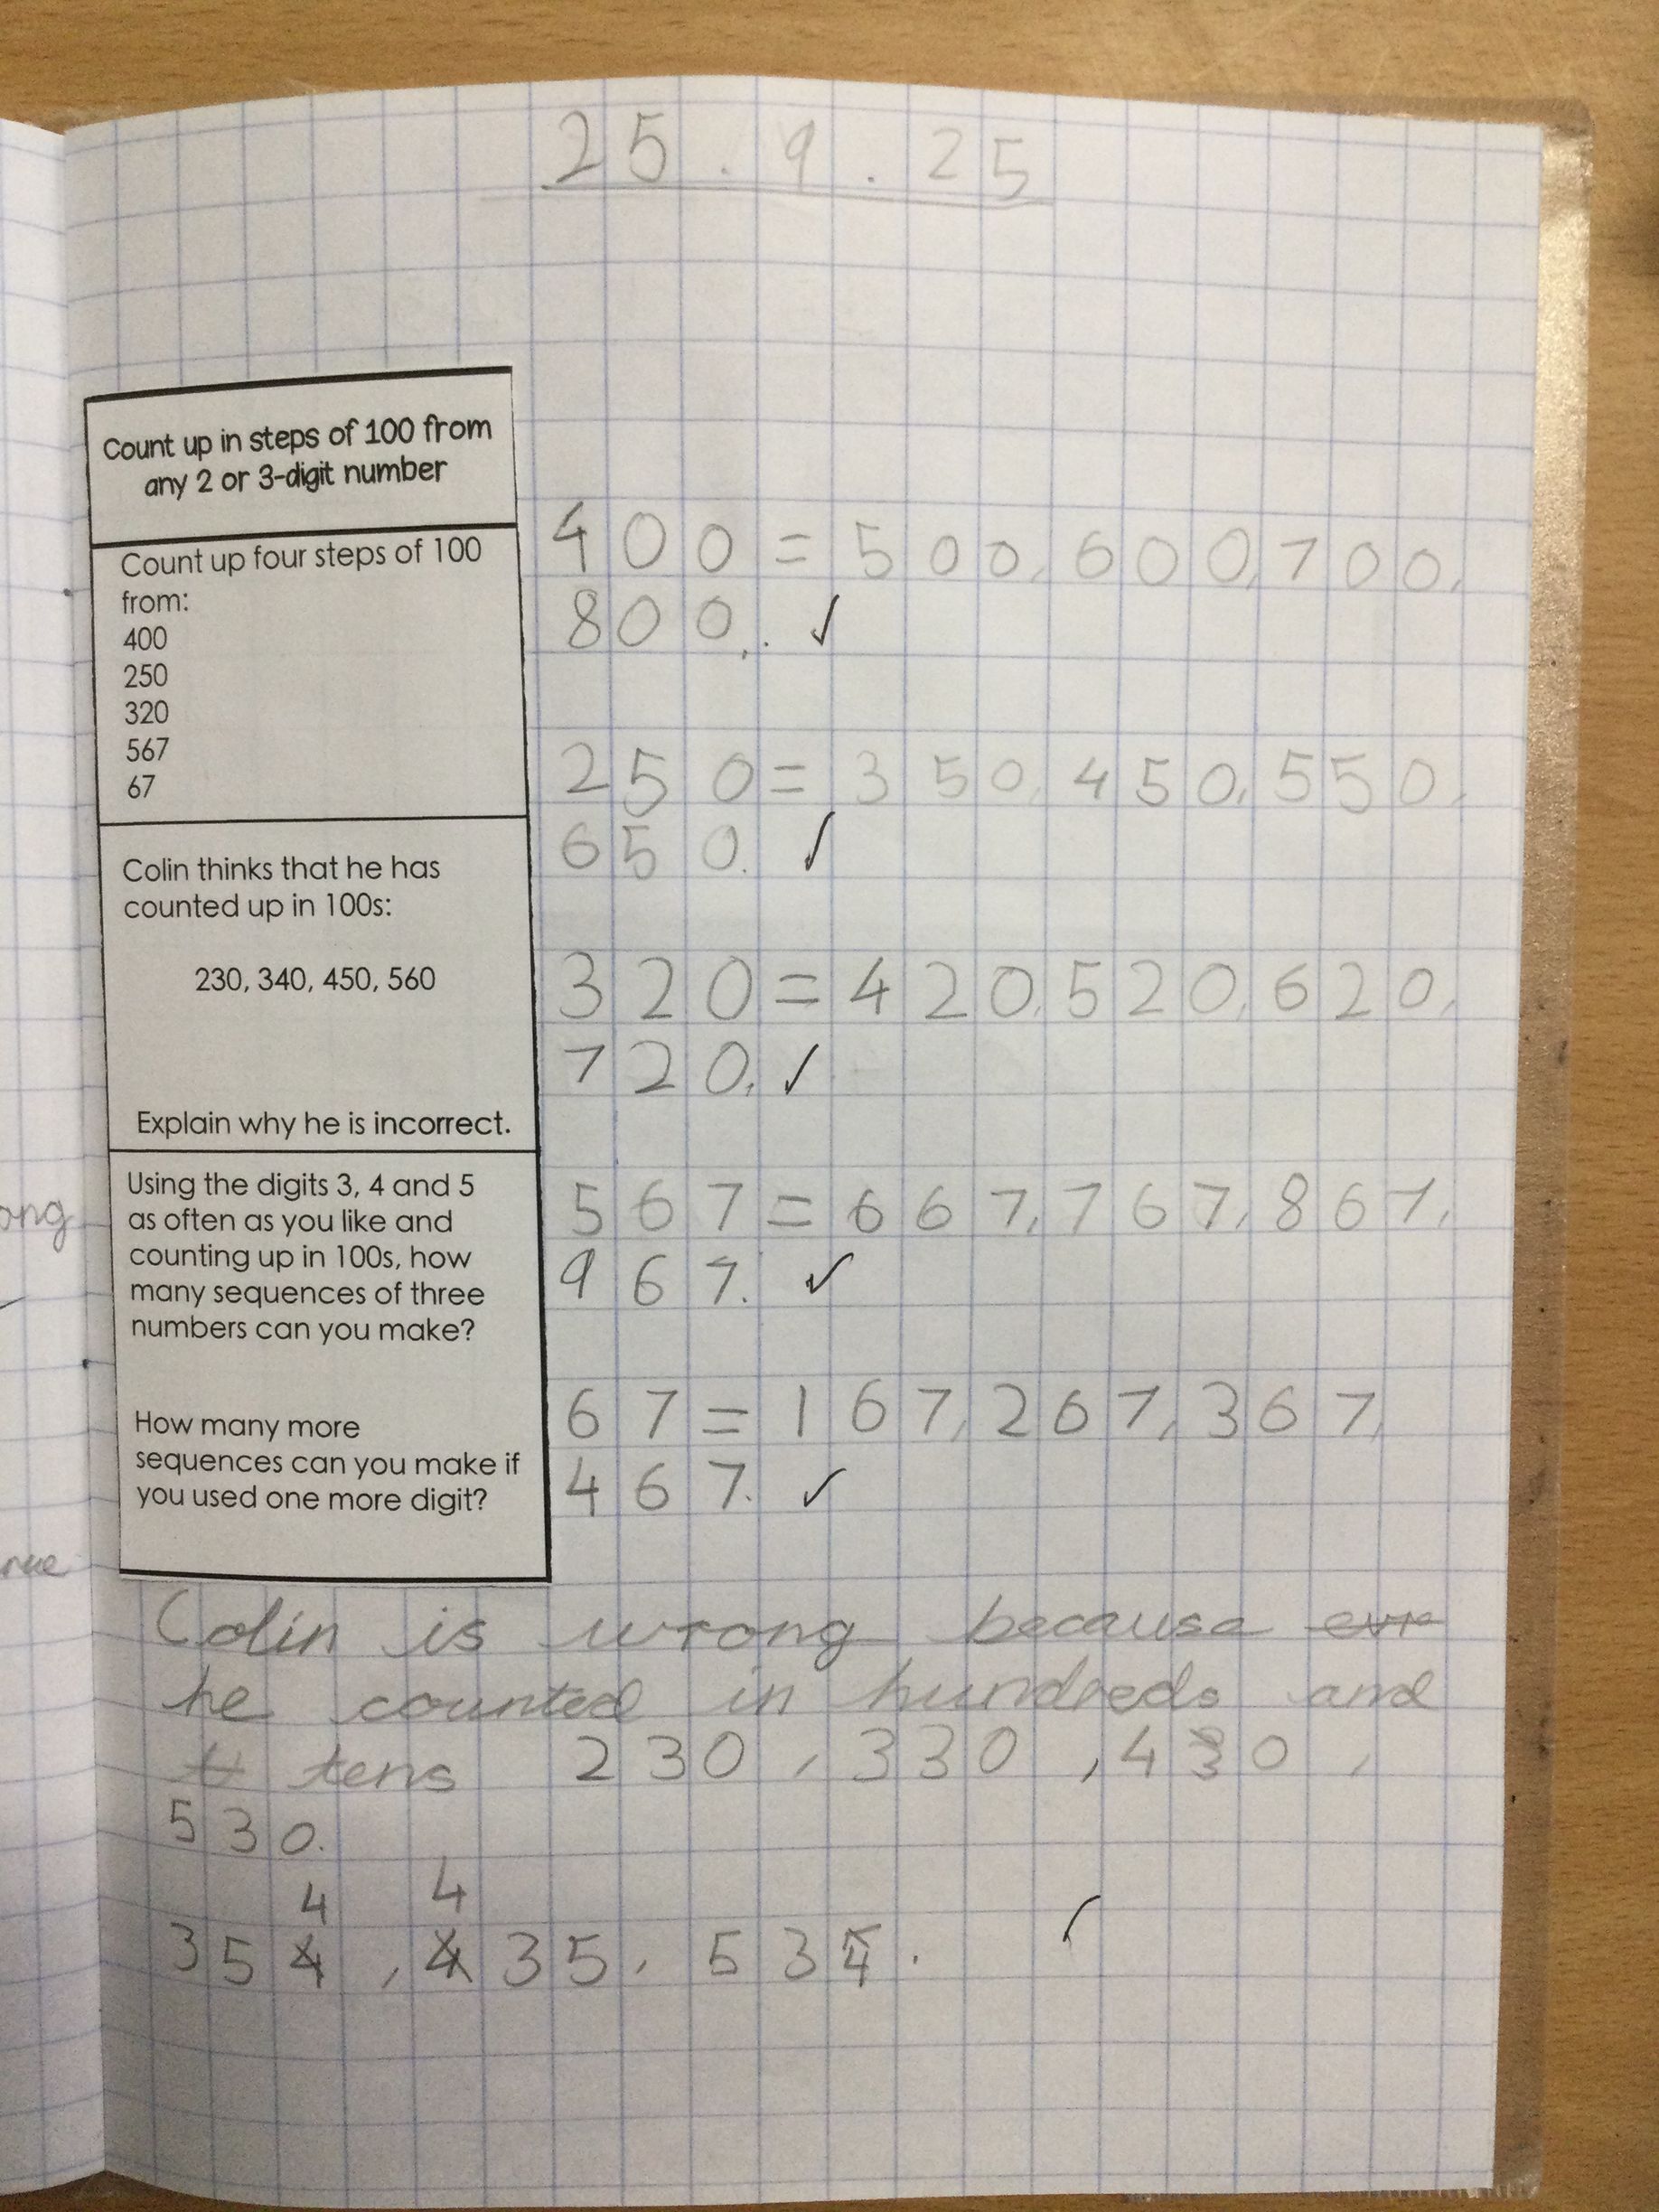 25.9.25
Count up in steps of 100 from
any 2 or 3-digit number
Count up four steps of 100
from:
400
250
320
567
67
Colin thinks that he has
counted up in 100s:
230, 340, 450, 560
Explain why he is incorrect.
Using the digits 3, 4 and 5
as often as you like and
counting up in 100s, how
many sequences of three
numbers can you make?
How many more
sequences can you make if
you used one more digit?
400 = 500, 600, 700,
800.
250 = 350, 450, 550,
650.
320 = 420, 520, 620,
720.
567 = 667, 767, 867,
967.
67 = 167, 267, 367,
467.
Colin is wrong because
he counted in hundreds and
tens 230, 330, 430,
530.
4 4
354, 435, 534.
ong